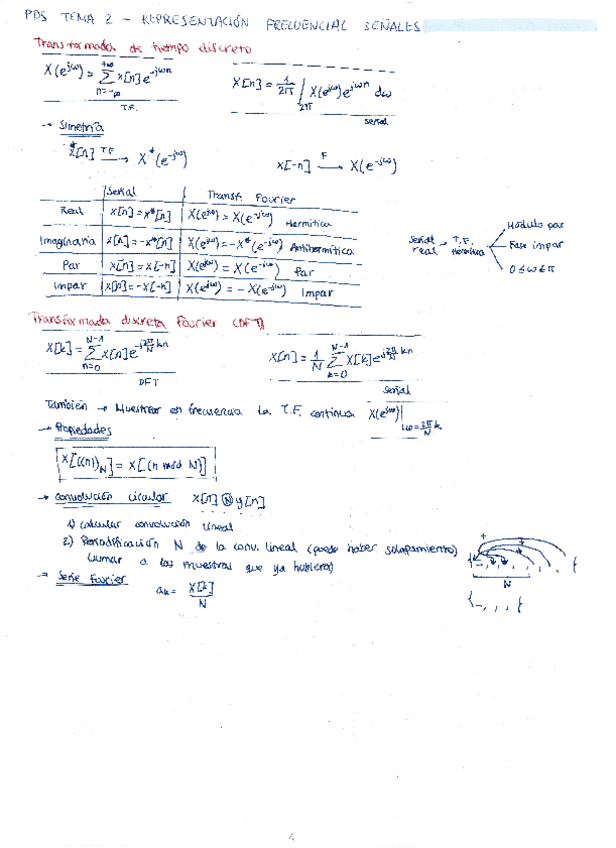 PDS TEMA 2 - REPRESENTACIÓN FRECUENCIAL SEÑALES
Transformada de tiempo discreto
X(e^{jω}) = Σ_{n=-∞}^{+∞} x[n] e^{-jωn}
T.F.
x[n] = 1/2π ∫_{2π} X(e^{jω}) e^{jωn} dω
señal
→ Simetría
x*[n] —T.F.→ X*(e^{-jω})
x[-n] —F→ X(e^{-jω})
Señal | Transf. Fourier
Real | x[n] = x*[n] | X(e^{jω}) = X(e^{-jω}) Hermítica
Imaginaria | x[n] = -x*[n] | X(e^{jω}) = -X*(e^{-jω}) Antihermítica
Par | x[n] = x[-n] | X(e^{jω}) = X(e^{-jω}) Par
Impar | x[n] = -x[-n] | X(e^{jω}) = -X(e^{-jω}) Impar
Señal real → T.F. Hermítica
Módulo par
Fase impar
0 ≤ ω ≤ π
Transformada discreta Fourier (DFT)
X[k] = Σ_{n=0}^{N-1} x[n] e^{-j 2π/N kn}
DFT
x[n] = 1/N Σ_{k=0}^{N-1} X[k] e^{j 2π/N kn}
señal
También → Muestrear en frecuencia la T.F. continua X(e^{jω})|_{ω = 2π/N k}
→ Propiedades
x[((n))_N] = x[(n mod N)]
→ Convolución circular x[n] Ⓝ y[n]
1) Calcular convolución lineal
2) Periodificación N de la conv. lineal (puede haber solapamiento)
(sumar a las muestras que ya hubiera)
+
N
→ Serie Fourier a_k = X[k]/N